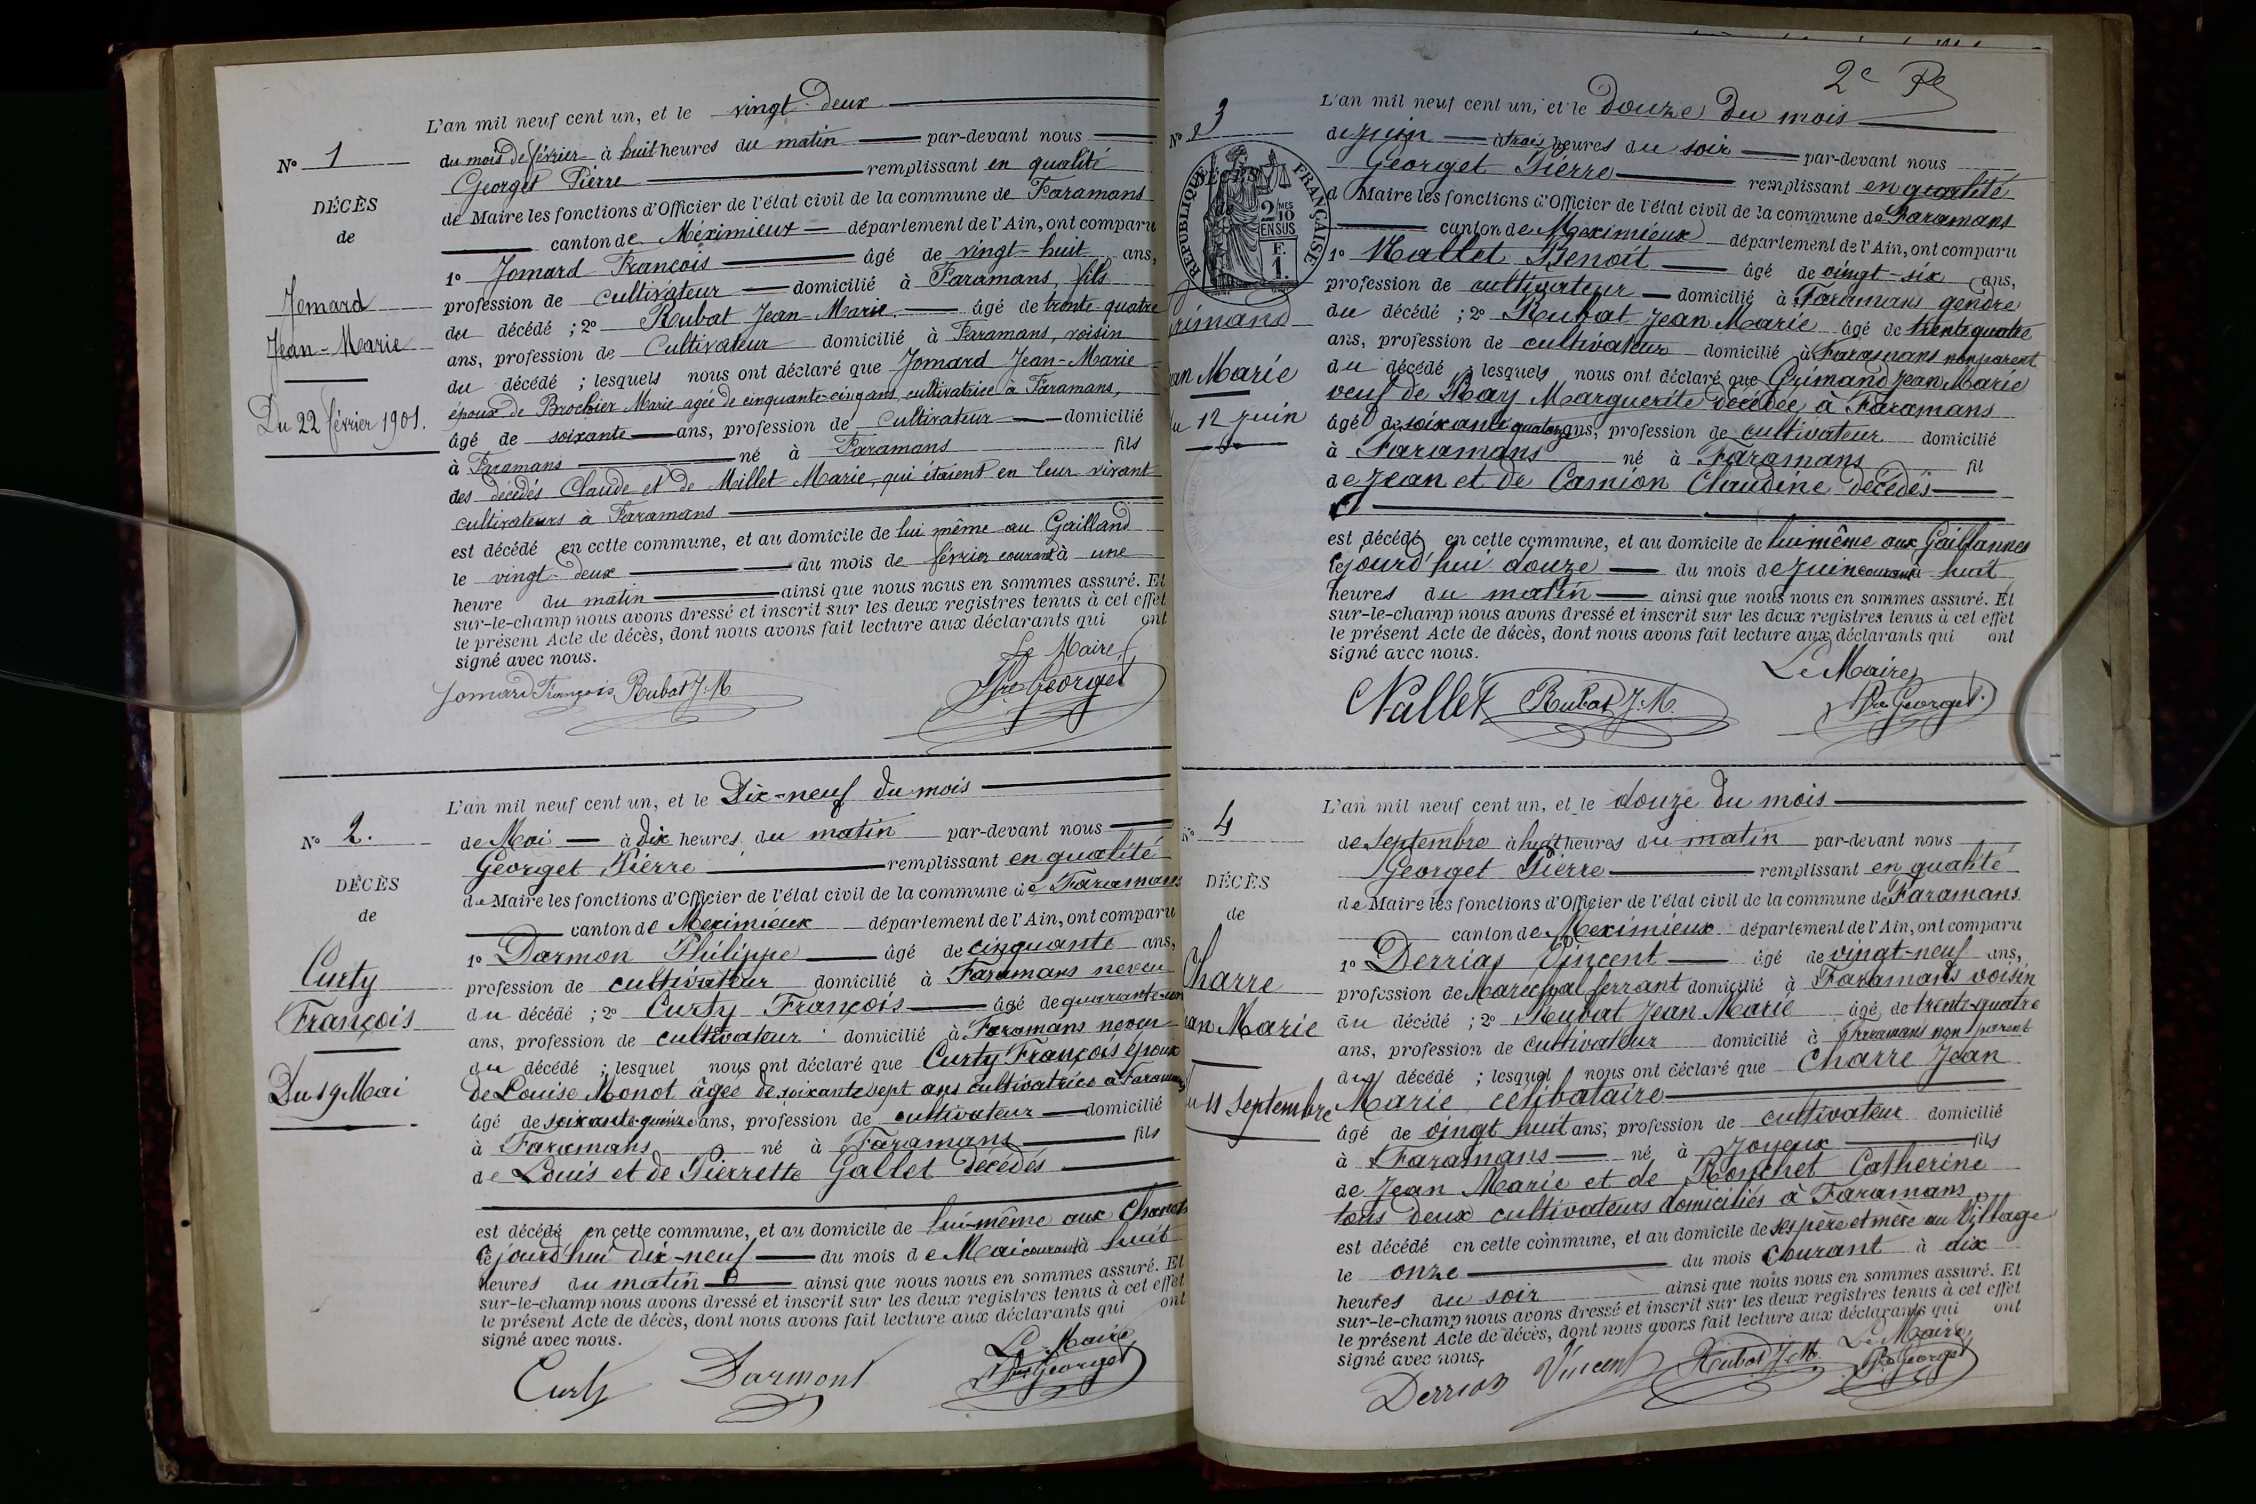 L'an mil neuf cent un, et le vingt-deux
N° 1
du mois de février à huit heures du matin par-devant nous
Georget Pierre remplissant en qualité
DÉCÈS
de Maire les fonctions d'Officier de l'état civil de la commune de Faramans
de
canton de Meximieux département de l'Ain, ont comparu
1° Jomard François âgé de vingt-huit ans,
Jomard
profession de cultivateur domicilié à Faramans, fils
du décédé ; 2° Rubat Jean-Marie âgé de trente-quatre
Jean-Marie
ans, profession de Cultivateur domicilié à Faramans, voisin
du décédé ; lesquels nous ont déclaré que Jomard Jean-Marie
Du 22 février 1901.
époux de Brochier Marie agée de cinquante-cinq ans, cultivatrice à Faramans,
âgé de soixante ans, profession de cultivateur domicilié
à Faramans né à Faramans fils
des décédés Claude et de Millet Marie, qui étaient en leur vivant
cultivateurs à Faramans
est décédé en cette commune, et au domicile de lui même au Gailland
le vingt-deux du mois de février courant à une
heure du matin ainsi que nous nous en sommes assuré. Et
sur-le-champ nous avons dressé et inscrit sur les deux registres tenus à cet effet
le présent Acte de décès, dont nous avons fait lecture aux déclarants qui ont
signé avec nous.
Le Maire
Jomard François Rubat J.M Pre Georget
L'an mil neuf cent un, et le Dix-neuf du mois
N° 2.
de Mai à dix heures du matin par-devant nous
Georget Pierre remplissant en qualité
DÉCÈS
de Maire les fonctions d'Officier de l'état civil de la commune de Faramans
de
canton de Meximieux département de l'Ain, ont comparu
1° Darmon Philippe âgé de cinquante ans,
Curty
profession de cultivateur domicilié à Faramans neveu
François
du décédé ; 2° Curty François âgé de quarante-un
ans, profession de cultivateur domicilié à Faramans neveu
du décédé ; lesquel nous ont déclaré que Curty François époux
Du 19 Mai
de Louise Monot âgée de soixante sept ans cultivatrice à Faramans
âgé de soixante-quinze ans, profession de cultivateur domicilié
à Faramans né à Faramans fils
de Louis et de Pierrette Gallet décédés
est décédé en cette commune, et au domicile de lui-même aux
cejourd'hui dix-neuf du mois de Mai courant à huit
heures du matin ainsi que nous nous en sommes assuré. Et
sur-le-champ nous avons dressé et inscrit sur les deux registres tenus à cet effet
le présent Acte de décès, dont nous avons fait lecture aux déclarants qui ont
signé avec nous.
Le Maire
Curty Darmont Pre Georget
2e
L'an mil neuf cent un, et le Douze du mois
N° 3
de Juin à trois heures du soir par-devant nous
Georget Pierre remplissant en qualité
RÉPUBLIQUE FRANÇAISE
2/10MES EN SUS
F. 1.
de Maire les fonctions d'Officier de l'état civil de la commune de Faramans
canton de Meximieux département de l'Ain, ont comparu
1° Nallet Benoit âgé de vingt-six ans,
profession de cultivateur domicilié à Faramans gendre
rimand
du décédé ; 2° Rubat Jean Marie âgé de trente quatre
ans, profession de cultivateur domicilié à Faramans non parent
an Marie
du décédé ; lesquels nous ont déclaré que Grimand Jean Marie
veuf de Ray Marguerite décédée à Faramans
u 12 juin
âgé de soixante quatorze ans, profession de cultivateur domicilié
à Faramans né à Faramans fil
de Jean et de Camion Claudine décédés
est décédé en cette commune, et au domicile de lui même aux Gaillannes
cejourd'hui douze du mois de Juin courant à huit
heures du matin ainsi que nous nous en sommes assuré. Et
sur-le-champ nous avons dressé et inscrit sur les deux registres tenus à cet effet
le présent Acte de décès, dont nous avons fait lecture aux déclarants qui ont
signé avec nous.
Le Maire
Nallet Rubat J.M. Pre Georget.
L'an mil neuf cent un, et le douze du mois
N° 4
de septembre à huit heures du matin par-devant nous
Georget Pierre remplissant en qualité
DÉCÈS
de Maire les fonctions d'Officier de l'état civil de la commune de Faramans
de
canton de Meximieux département de l'Ain, ont comparu
1° Derrias Vincent âgé de vingt-neuf ans,
Charre
profession de Maréchal ferrant domicilié à Faramans voisin
an Marie
du décédé ; 2° Rubat Jean Marie âgé de trente-quatre
ans, profession de cultivateur domicilié à Faramans non parent
du décédé ; lesquel nous ont déclaré que Charre Jean
u 11 Septembre
Marie célibataire
âgé de vingt huit ans, profession de cultivateur domicilié
à Faramans né à Joyeux fils
de Jean Marie et de Ronchet Catherine
tous deux cultivateurs domiciliés à Faramans
est décédé en cette commune, et au domicile de ses père et mère au Village
le onze du mois courant à dix
heures du soir ainsi que nous nous en sommes assuré. Et
sur-le-champ nous avons dressé et inscrit sur les deux registres tenus à cet effet
le présent Acte de décès, dont nous avons fait lecture aux déclarants qui ont
signé avec nous.
Le Maire
Derrias Vincent Rubat J.M. Pre Georget